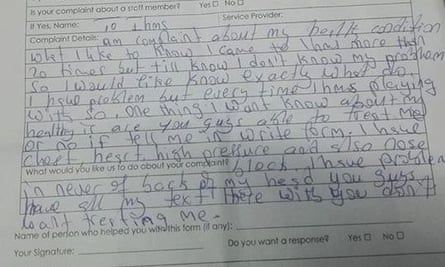 Is your complaint about a staff member? Yes ☐ No ☐
If Yes, Name: To Ihms Service Provider:
Complaint Details: am complaint about my health condition
what I like to know I came to Ihms more than
20 times but till know I don't know my problem
so I would like know exactly what do
I have problem but every time Ihms playing
with so, one thing I want know about my
healthy is are you guys able to treat me
or no if tell me in write form. I have
chest, heart high pressure and also nose
What would you like us to do about your complaint? block I have problem
in never of back of my head you guys
have all my text there with you don't
want treating me.
Name of person who helped you with this form (if any):
Your Signature: Do you want a response? Yes ☐ No ☐